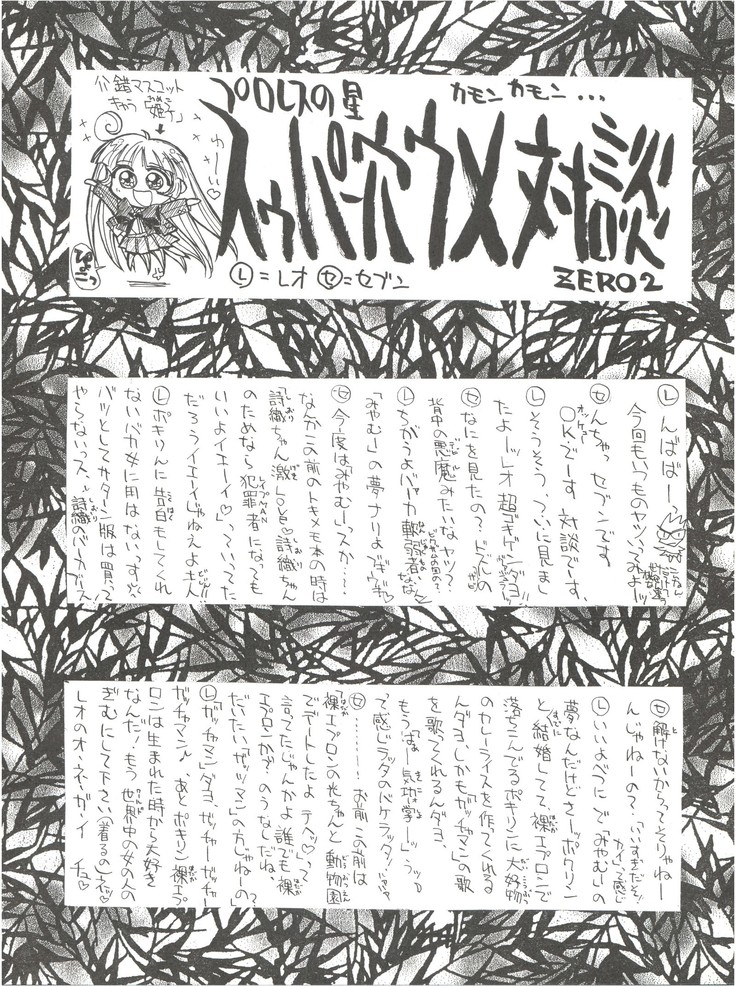 公鑑マスコット
きゃら「姫子」
ゆーいっ♡
ぴょこっ
プロレスの星
カモンカモン...
スゥパー穴ウメ対談
ミソイロンバ
ZERO2
Ⓛ=レオ ㋝=セブン
Ⓛんばばーっ
今回もいつものヤツいってみよー!!
㋝んちゃっセブンです
OKでーす対談でーす、
オッケー
Ⓛそうそう、ついに見まし
たよーッレオ超
㋝なにを見たの?どくしんの
背中の悪魔みたいなヤツ?
Ⓛちがうよバーカ軟弱者
「みやむー」の夢
㋝今度は「みやむー」っスか……
なんかこの前のトキメモ本の時は
「詩織ちゃん激LOVE♡詩織ちゃん
のためなら犯罪者になっても
いいよイエーイ♡」っていってた
だろうイエーイじゃねえよ主人
Ⓛポキりんに告白もしてくれ
ないバカ女に用はないっす☆
バッとしてサターン版は買って
やらないっス、詩織のバーカブース
㋝解けないからってそりゃねー
んじゃねーの?「いいすぎだぞぅ!
カイ」って感じ
Ⓛいいよべつに で「みやむー」の
夢なんだけどさーッポクリン
と結婚してて、裸エプロンで
落ちこんでるポキリンに大好物
のカレーライスを作ってくれる
んダヨ、しかも「ガッチャマン」の歌
を歌ってくれるんダヨ、
もうばぁー気功学ーッ」うッッ
って感じラッタのバケラッタ!
㋝………!お前この前は
「裸エプロンの光ちゃんと動物園
でデートしたよテヘッ♡」って
言ってたじゃんかよ誰でも裸
エプロンかァ?のうなしだね、
だいたい「ガッツマン」の方じゃねーの」
Ⓛ「ガッチャマン」ダヨ、ガッチャーガッチャー
ガッチャマン♪、あとポキリン裸エプ
ロンは生まれた時から大好き
なんだ!もう世界中の女の人の
ぎむにして下さい(着るの)イッ♡
レオのオ・ネ・ガ・イ チュ♡